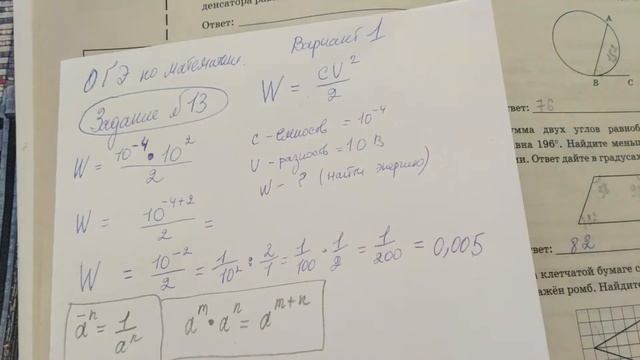 денсатора рав
Ответ:
ОГЭ по математики.
Вариант 1
Задание №13
W = CU²/2
C - Емкость = 10⁻⁴
U - разность = 10 В
W - ? (найти энергию)
W = 10⁻⁴ • 10²/2
W = 10⁻⁴⁺²/2 =
W = 10⁻²/2 = 1/10² : 2/1 = 1/100 · 1/2 = 1/200 = 0,005
a⁻ⁿ = 1/aⁿ
aᵐ • aⁿ = aᵐ⁺ⁿ
A
B
C
твет: 76
умма двух углов равноб
вна 196°. Найдите мень
и. Ответ дайте в градуса
вет: 82
а клетчатой бумаге с
ажён ромб. Найдите